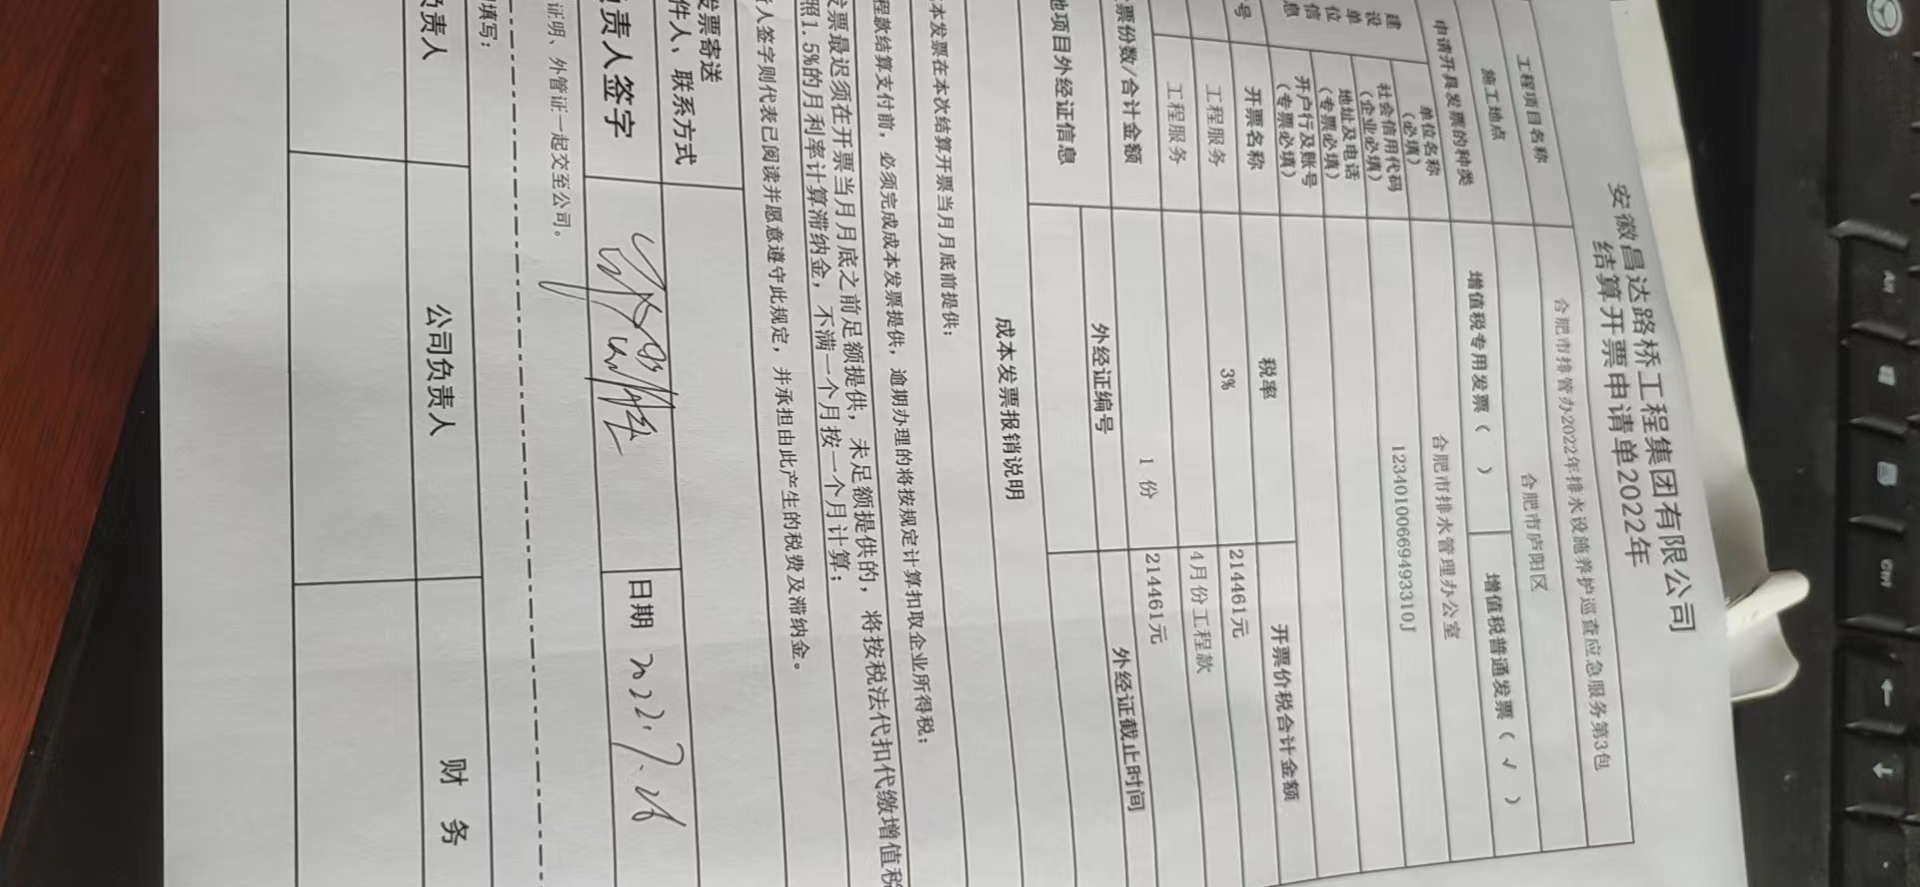 安徽昌达路桥工程集团有限公司
结算开票申请单2022年
工程项目名称 合肥市排管办2022年排水设施养护巡查应急服务第3包
施工地点 合肥市庐阳区
申请开具发票的种类 增值税专用发票（ ） 增值税普通发票（ √ ）
建设单位信息
单位名称（必填） 合肥市排水管理办公室
社会信用代码（企业必填） 12340100669493310J
地址及电话（专票必填）
开户行及账号（专票必填）
号 开票名称 税率 开票价税合计金额
工程服务 3% 214461元
工程服务 4月份工程款
票份数/合计金额 1 份 214461元
地项目外经证信息 外经证编号 外经证截止时间
成本发票报销说明
本发票在本次结算开票当月月底前提供；
程款结算支付前，必须完成成本发票提供，逾期办理的将按规定计算扣取企业所得税；
发票最迟须在开票当月月底之前足额提供，未足额提供的，将按税法代扣代缴增值税
照1.5%的月利率计算滞纳金，不满一个月按一个月计算；
人签字则代表已阅读并愿意遵守此规定，并承担由此产生的税费及滞纳金。
发票寄送
件人、联系方式
负责人签字 日期 2022.7.26
证明、外管证一起交至公司。
填写：
负责人 公司负责人 财 务